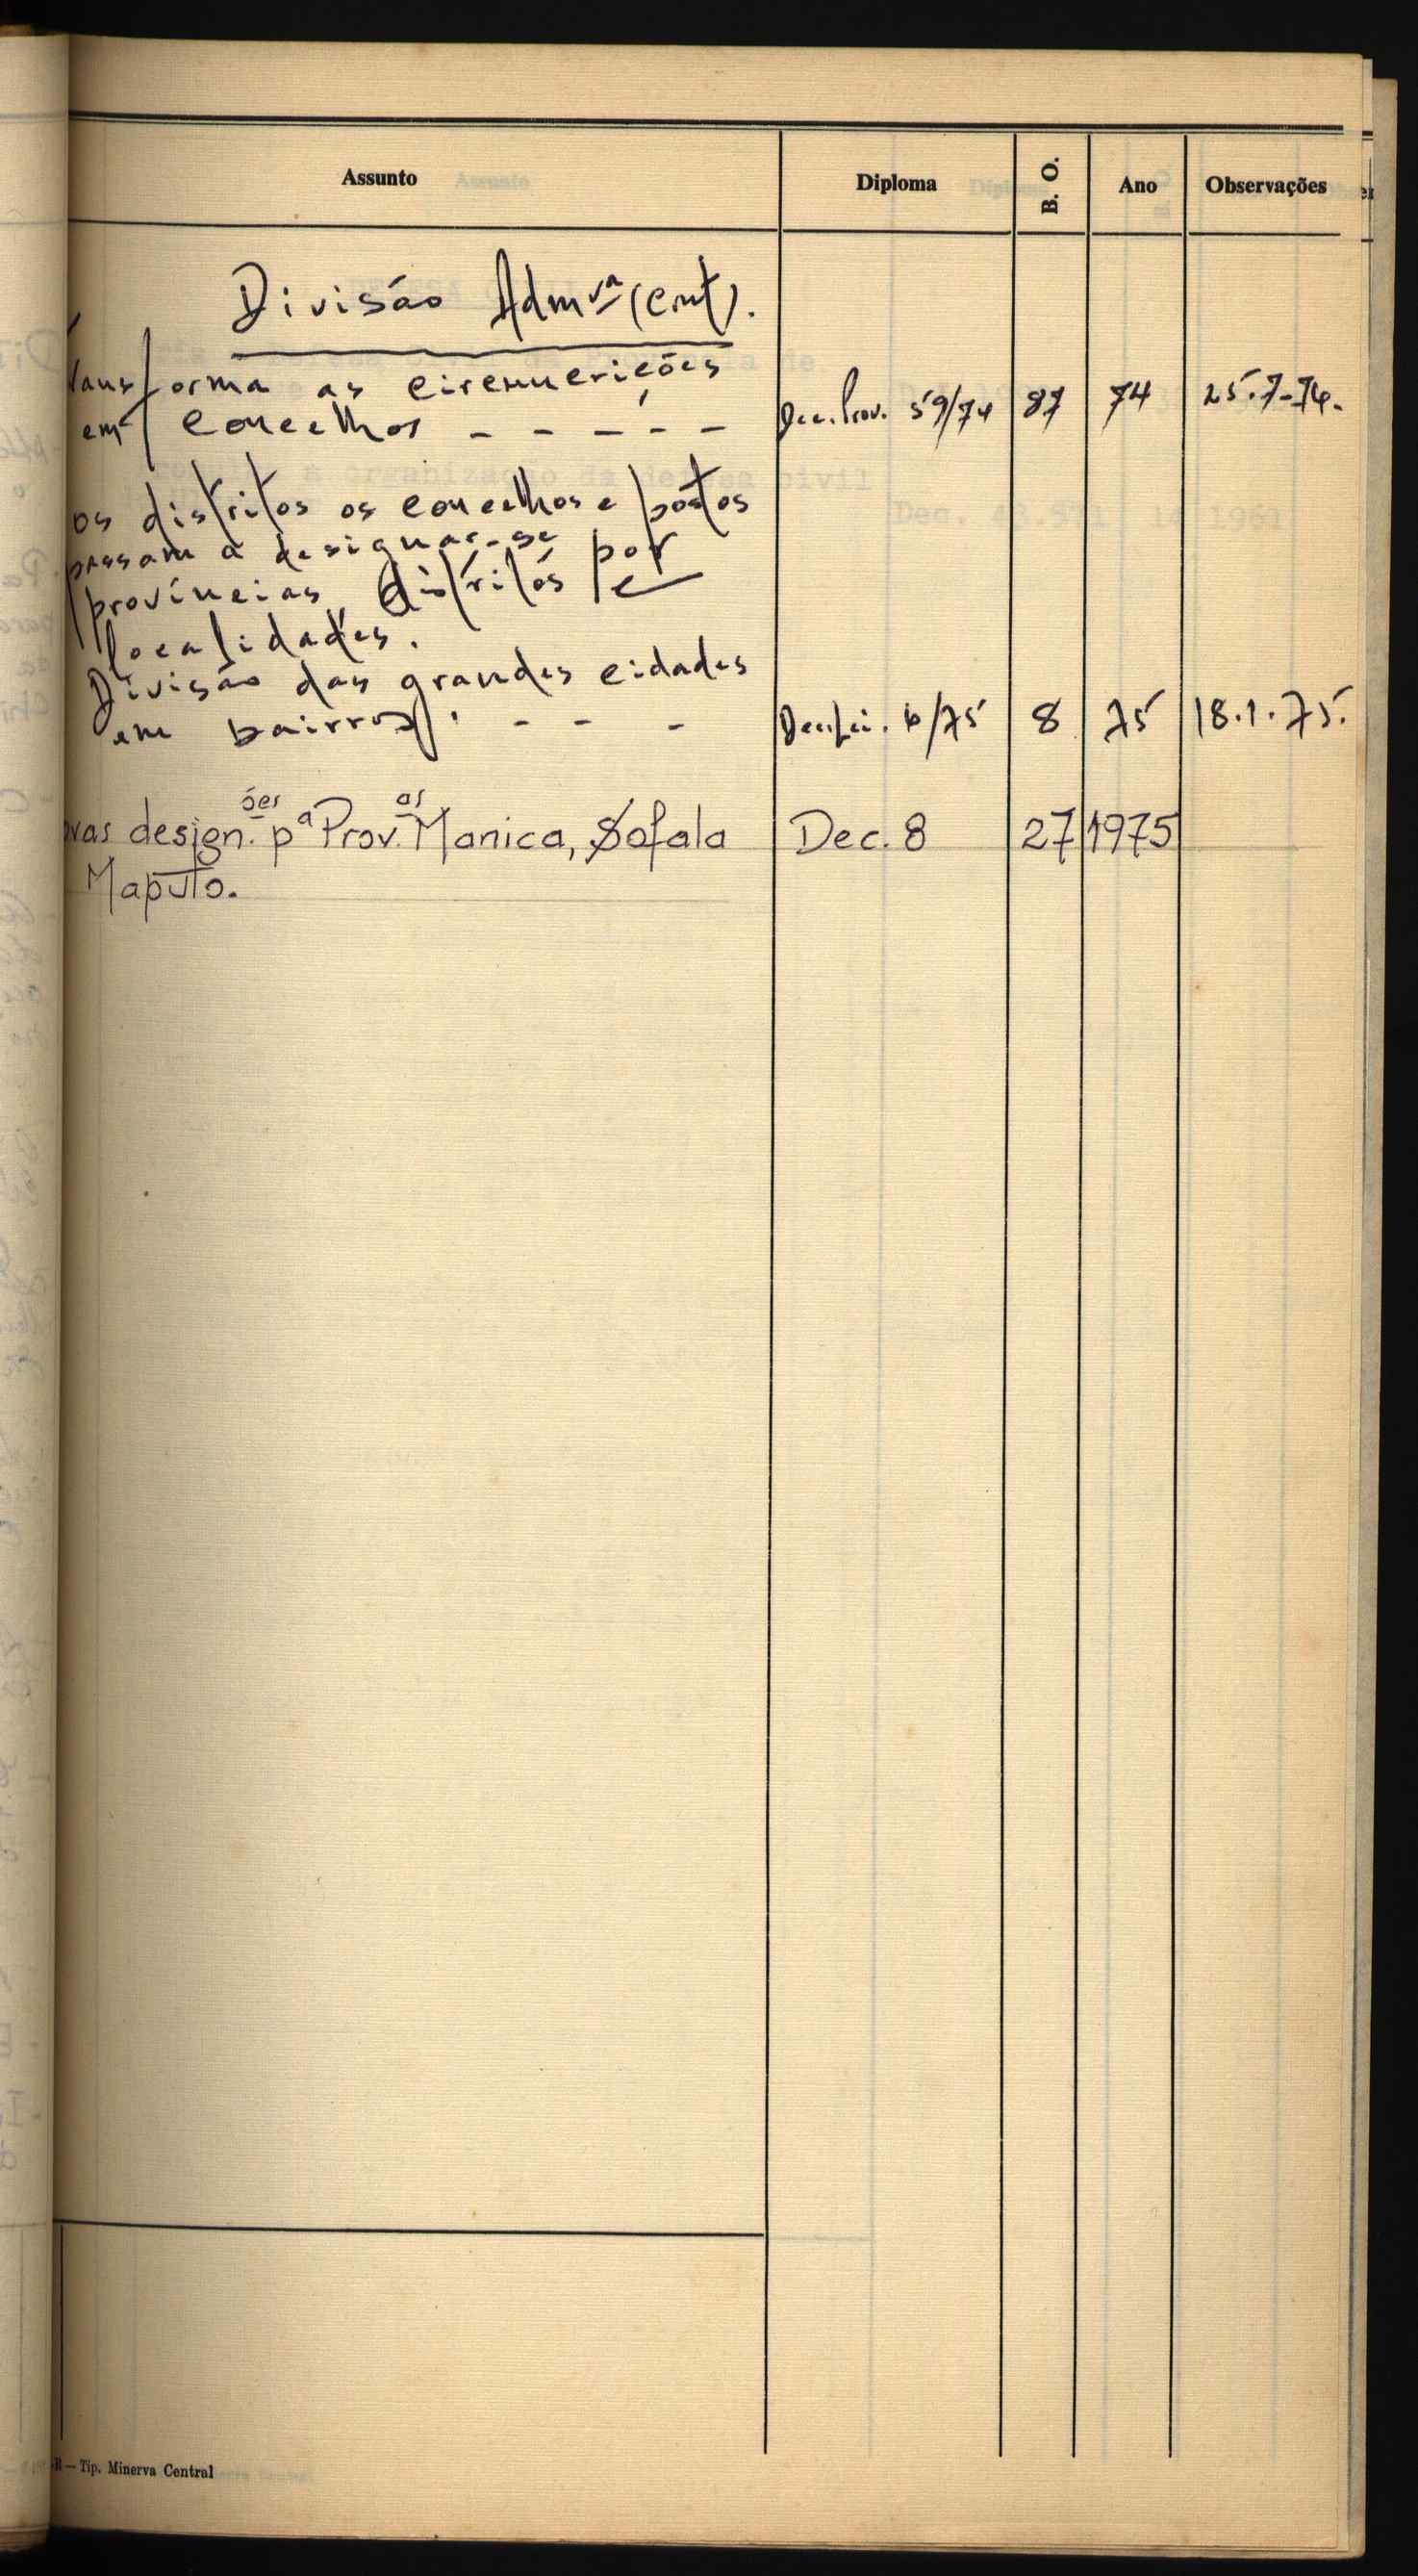 Assunto Diploma B. O. Ano Observações
Divisão Admva (cont).
Transforma as circunscrições
em concelhos - - - - - Dec. Prov. 59/74 87 74 25.7.74.
os distritos os concelhos e postos
passam a designar-se por
províncias distritos e
localidades.
Divisão das grandes cidades
em bairros. - - - Dec. Lei. 6/75 8 75 18.1.75.
ovas design.ões pª Prov.as Manica, Sofala Dec. 8 27 1975
Maputo.
R — Tip. Minerva Central